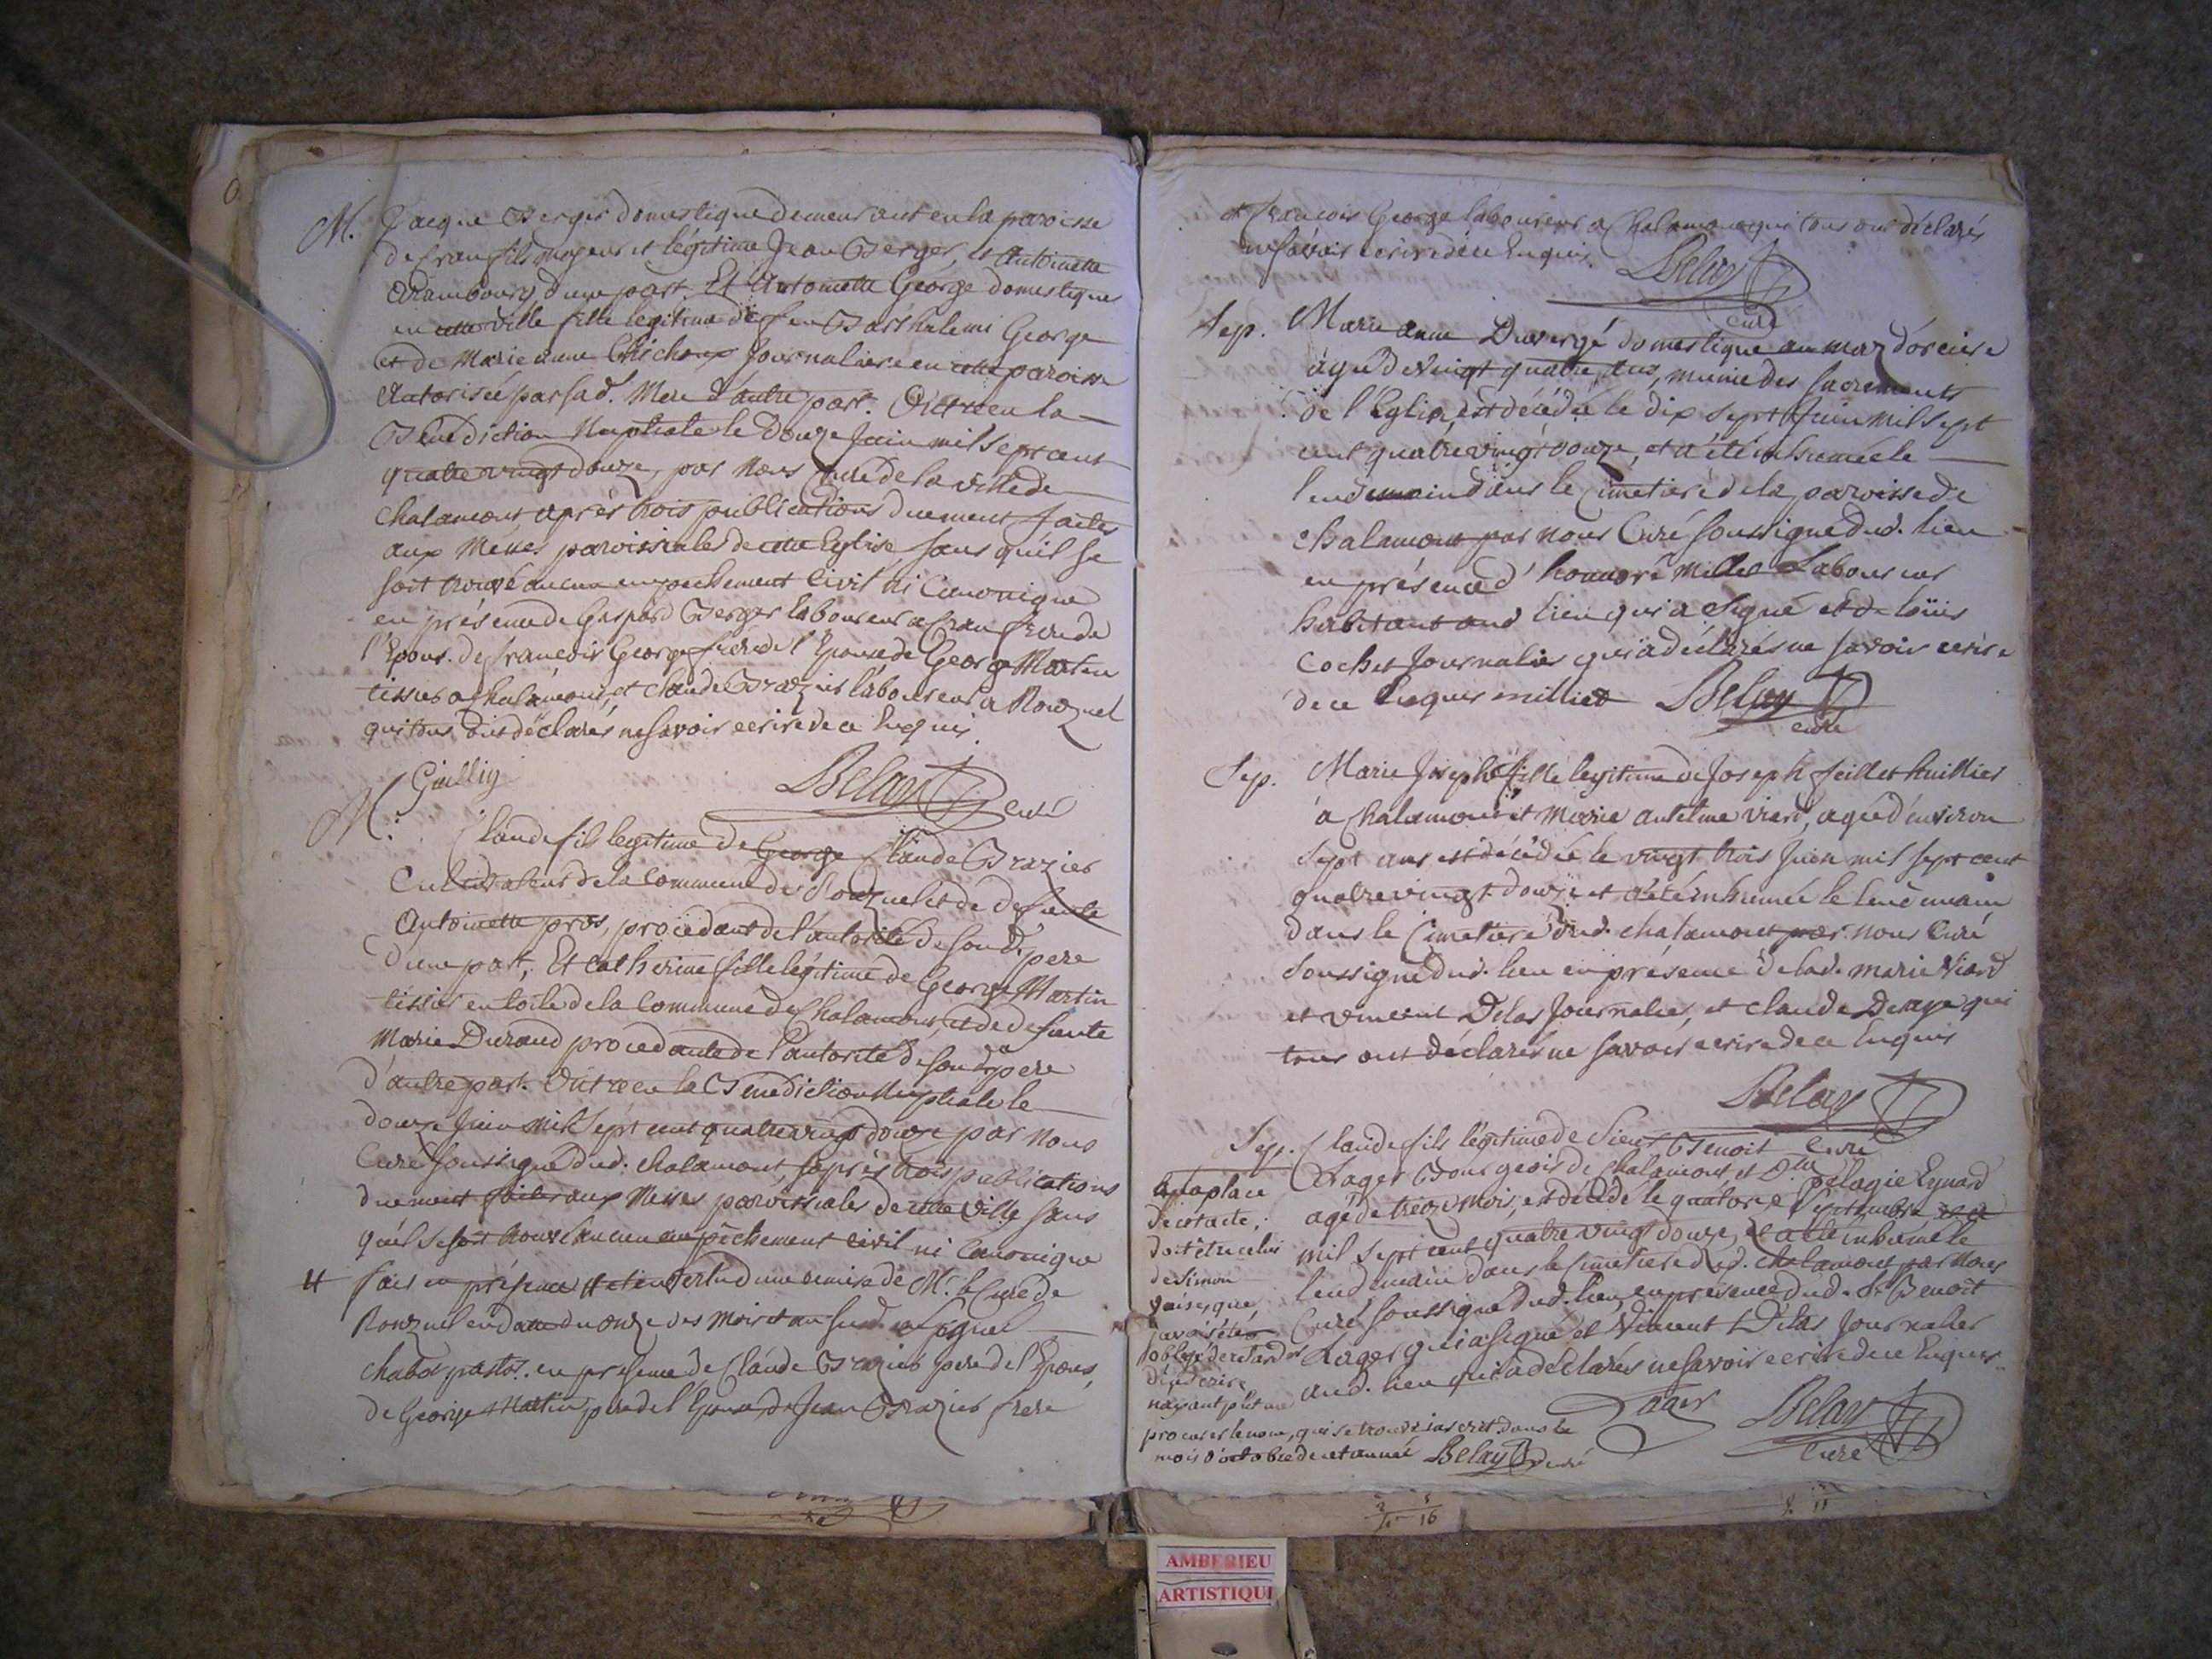 M. Jacque Berger domestique demeurant en la paroisse
de Cran fils majeur et légitime Jean Berger, et Antoinette
d'une part. Et Antoinette George domestique
en cette ville fille légitime de feu Barthelemi George
et de Marie anne Chichoux Journaliere en cette paroisse
Autorisée par sad. Mere d'autre part. Ont recu la
Bénédiction Nuptiale le douze Juin mil sept cent
quatre vingt douze, par Nous Curé de la ville de
Chalamont, après trois publications duement faites
aux Messes paroissiales de cette Eglise sans quil se
soit trouvé aucun empechement Civil ni Canonique
en présence de Gaspard Berger laboureur a Cran frere de
l'Epoux. de francois George frere de l'Epouse de George Martin
tissier a Chalamont, et Claude Brazier laboureur a Ronzuel
qui tous ont déclarés ne savoir ecrire de ce Enquis.
Belay curé
M. Claude fils legitime de George Claude Brazier
Cultivateur de la Commune de Ronzuel et de defunte
Antoinette pros, procédant de l'autorité de son d. pere
d'une part; Et Catherine fille légitime de George Martin
tissier en toile de la Commune de Chalamont, et de defunte
Marie Durand procedante de l'autorité de son d. pere
d'autre part. Ont recu la Bénédiction Nuptiale le
douze Juin mil sept cent quatre vingt douze par Nous
Curé soussigné dud. Chalamont, après trois publications
duement faites aux Messes paroissiales de cette Ville sans
quil se soit trouvé aucun empêchement civil ni Canonique
fait en présence # et en vertu d'une remise de Mr. le Curé de
Ronzuel en date du onze des mois et an susd.
Chabot past. en présence de Claude Brazier pere de l'Epoux,
de George Martin pere de l'Epouse de Jean Brazier frere
et francois George laboureur a Chalamont qui tous ont déclarés
ne savoir ecrire de ce Enquis. Belay
curé
Sep. Marie anne Duvergé domestique au maz
agée de vingt quatre ans, munie des sacrements
de l'Eglise, est décédée le dix sept Juin mil sept
cent quatre vingt douze, et a été inhumée le
lendemain dans le Cimetiere de la paroisse de
Chalamont par nous Curé soussigné dud. lieu
en présence d'honnoré Millet Laboureur
habitant aud. lieu qui a signé et de loüis
Cochet Journalier qui a déclarés ne savoir ecrire
de ce Enquis milliet Belay
curé
Sep. Marie Josephe fille legitime de Joseph feillet huillier
a Chalamont et Marie anselme viard, agée d'environ
sept ans est décédée le vingt trois Juin mil sept cent
quatre vingt douze et a été inhumée le lendemain
dans le Cimetiere dud. Chalamont par nous Curé
soussigné dud. lieu en présence de lad. marie Viard
et vincent Delas Journalier, et claude Deraye qui
tous ont déclarés ne savoir ecrire de ce Enquis
Belay
curé
Sep. Claude fils légitime de Sieur Benoit
Lager Bourgeois de Chalamont et Dlle pélagie Eynard
agé de treize mois, est décédé le quatorze Septembre
mil sept cent quatre vingt douze, et a été inhumé le
lendemain dans le Cimetiere dud. Chalamont par Nous
Curé soussigné dud. lieu, en présence dud. Sr. Benoit
Lager qui a signé et Vincent Delas Journalier
aud. lieu qui a déclarés ne savoir ecrire de ce Enquis
Lager Belay
curé
A la place
de cet acte,
doit être celui
de Simon
que
j'avois été
obligé de retarder
d'inscrire
n'ayant put me
procurer le nom, qui se trouve inscrit dans le
mois d'octobre de cet année Belay curé
AMBERIEU
ARTISTIQU